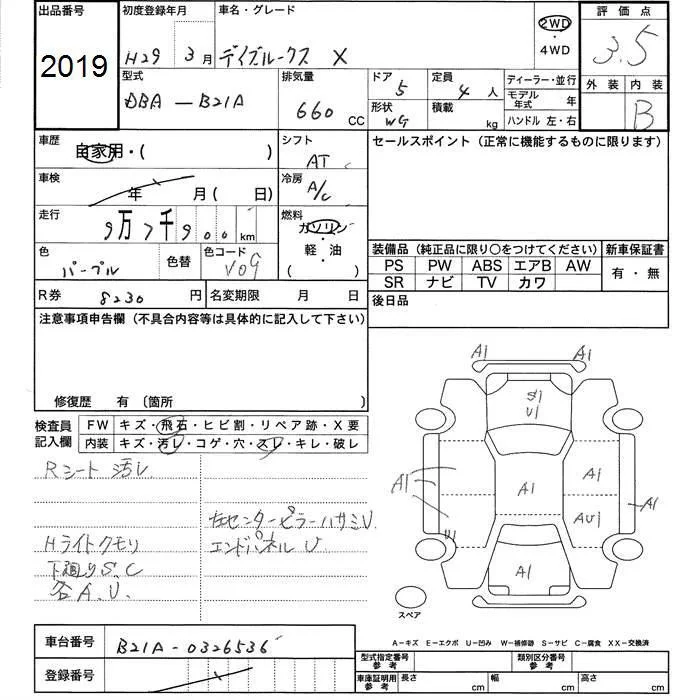 出品番号 初度登録年月 車名・グレード 評価点
2019 H29 3月 デイズルークス X 2WD・4WD 3.5
外装 内装
B
型式 排気量 ドア 定員 ディーラー・並行
DBA-B21A 660cc 5 4人 モデル年式 年
形状 積載 ハンドル 左・右
WG kg
車歴 シフト セールスポイント (正常に機能するものに限ります)
自家用・( ) AT
車検 年 月( 日) 冷房 A/C
走行 9万7千900km 燃料 ガソリン・軽・油( )
色 パープル 色替 色コード V09
装備品 (純正品に限り○をつけてください) 新車保証書
PS PW ABS エアB AW 有・無
SR ナビ TV カワ
R券 8230円 名変期限 月 日 後日品
注意事項申告欄 (不具合内容等は具体的に記入して下さい)
修復歴 有 (箇所
検査員記入欄 FW キズ・飛石・ヒビ割・リペア跡・X要
内装 キズ・汚レ・コゲ・穴・スレ・キレ・破レ
Rシート 汚レ
右センターピラーハサミU
Hライトクモリ エンドパネル U
下廻りS.C
各A.U.
A1 A1
S1
U1
A1 A1 A1 A1
U1 AU1
A1
スペア
A-キズ E-エクボ U-凹み W-補修跡 S-サビ C-腐食 XX-交換済
車台番号 B21A-0326536
登録番号
型式指定番号 参考 類別区分番号 参考
車庫証明用 参考 長さ cm 幅 cm 高さ cm